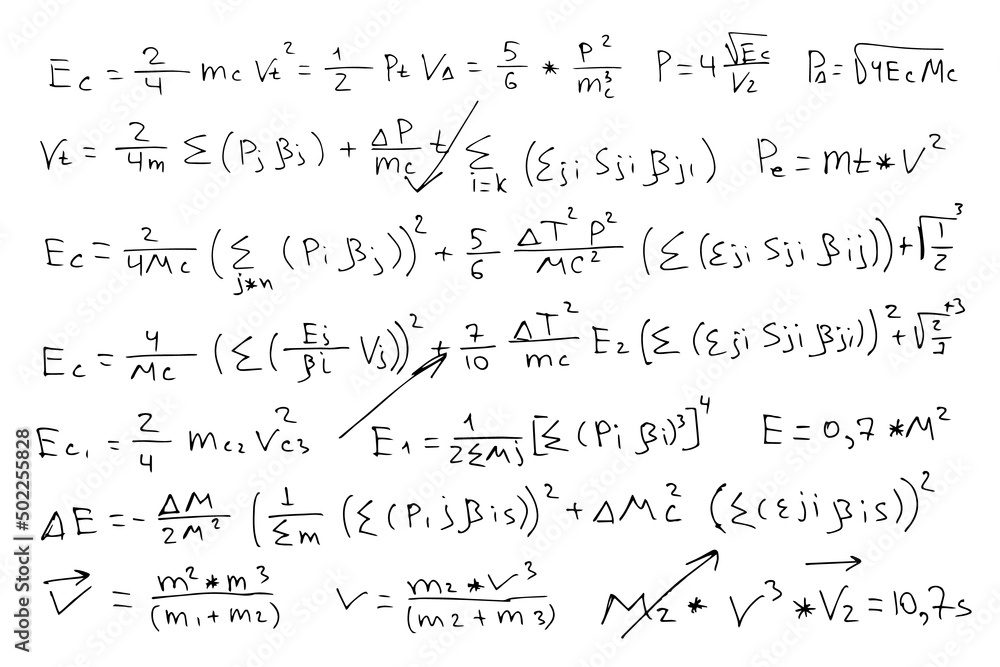 Ec = 2/4 mc Vt² = 1/2 Pt VΔ = 5/6 * P²/mc³ P = 4 √Ec/V2 PΔ = √4EcMc
Vt = 2/4m Σ(Pj βj) + ΔP/mc t Σ i=k (Σji Sji βji) Pe = mt * V²
Ec = 2/4Mc (Σ j*n (Pi βj))² + 5/6 ΔT² P²/MC² (Σ (Σji Sji βij)) + √1/2 ³
Ec = 4/Mc (Σ(Ej/βi Vj))² + 7/10 ΔT²/mc E2 (Σ (Σji Sji βji))² + √2/3 +3
Ec1 = 2/4 mc2 Vc3² E1 = 1/2ΣMj [Σ(Pi βi)³]⁴ E = 0,7 * M²
ΔE = - ΔM/2M² (1/Σm (Σ(Pij βis))² + ΔMc² (Σ(εji βis))²
V = m² * m3/(m1 + m2) V = m2 * V³/(m2 + m3) M2 * V³ * V2 = 10,7s
Adobe Stock | #502255828
Adobe Stock